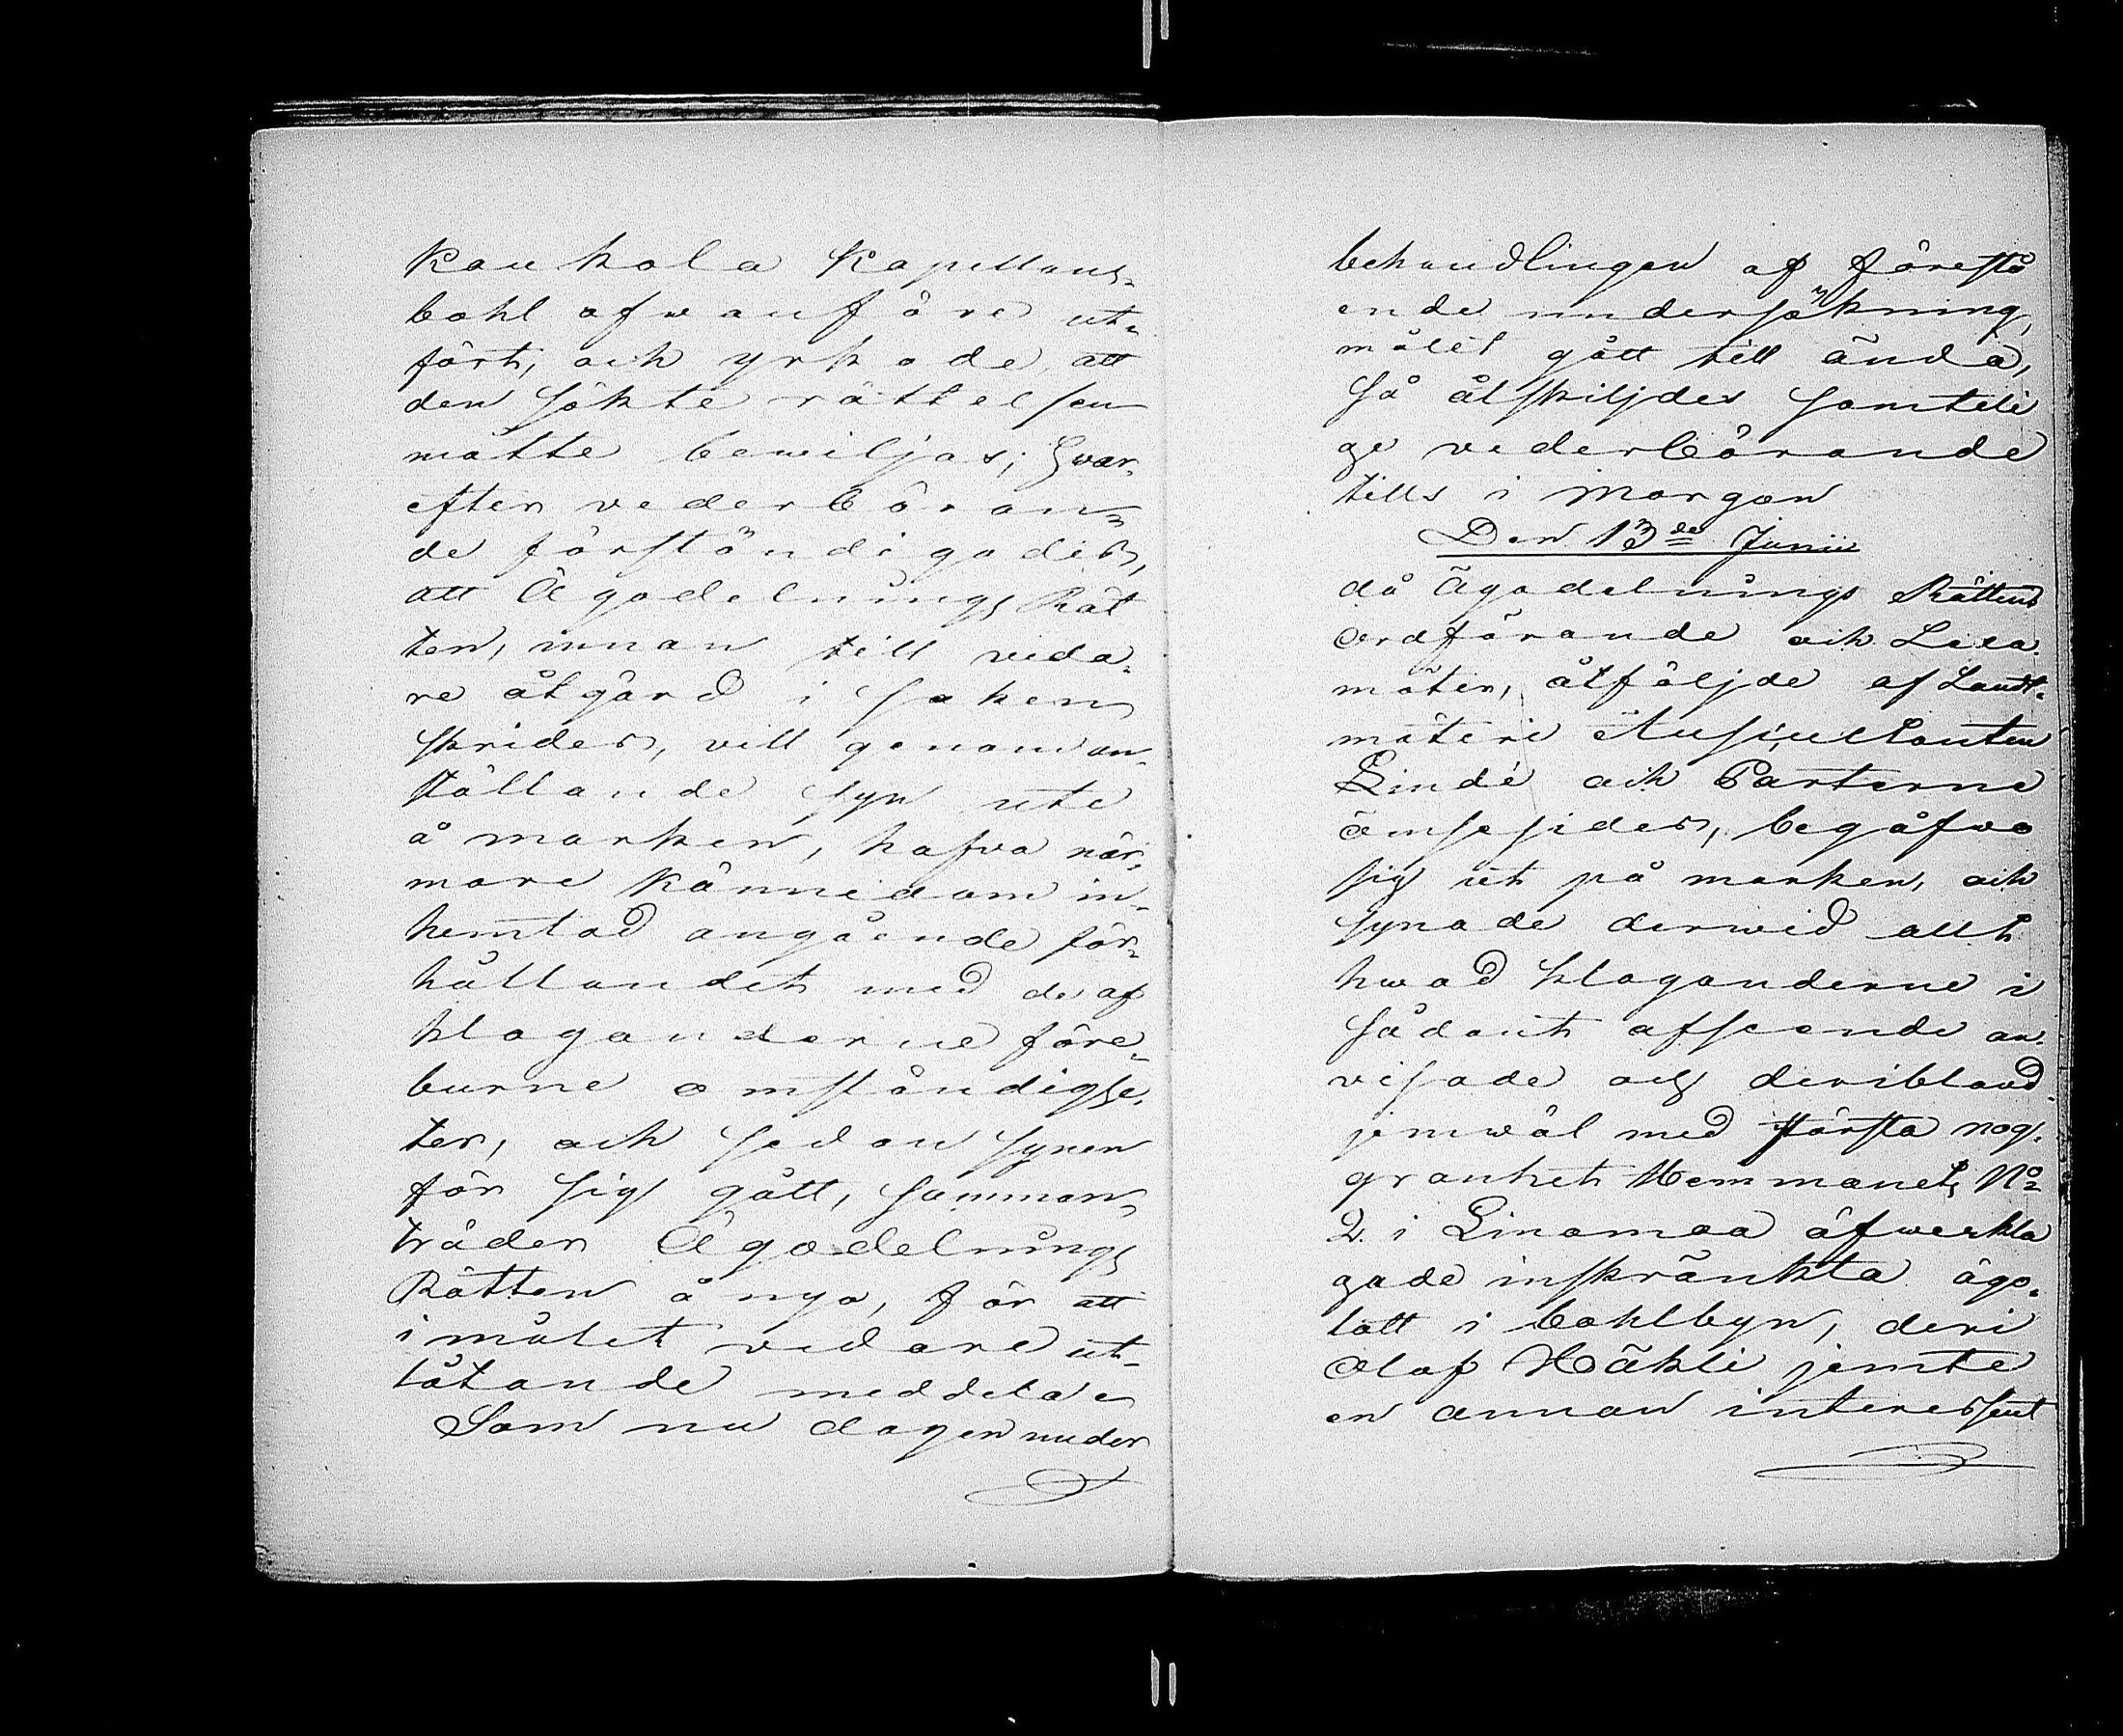 Kaukola Kapellans-
bohl ofwanföre ut-
fört, och yrkade, att
den sökte rättelsen
måtte bewiljas; hvar-
efter vederböran-
de förständigades,
att Ägodelnings Rät
ten, innan till vida-
re åtgärd i saken
skrides, vill genom an-
ställande syn ute
å marken, hafva när-
mare kännedom in-
hemtad angående för-
hållandet med de af
klaganderne före-
burne omständighe-
ter, och sedan synen
för sig gått, samman-
träder Ägodelnings
Rätten å nyo, för att
i målet vidare ut-
låtande meddela.
Som nu dagen under
behandlingen af förestå
ende undersöknings
målet gått till ända,
så åtskiljdes samteli
ge vederbörande
tills i morgon
Den 13de Junii
då Ägodelnings Rättens
Ordförande och Leda-
möter, åtföljde af Landt-
mäteri Auscultanten
Lindé och Parterne
ömsesides, begåfvo
sig ut på marken, och
synade derwid allt
hwad klaganderne i
sådant afseende an-
visade och deribland
jemwäl med största nog-
granhet Hemmanets No
2 i Linamaa öfwerkla
gade inskränkta ägo-
lott i bohlbyn, deri
Olof Häkli jemte
en annan interessent